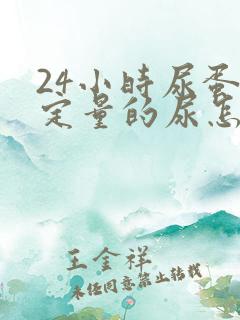 24小时尿蛋
定量的尿怎
王金祥
未经同意禁止转载